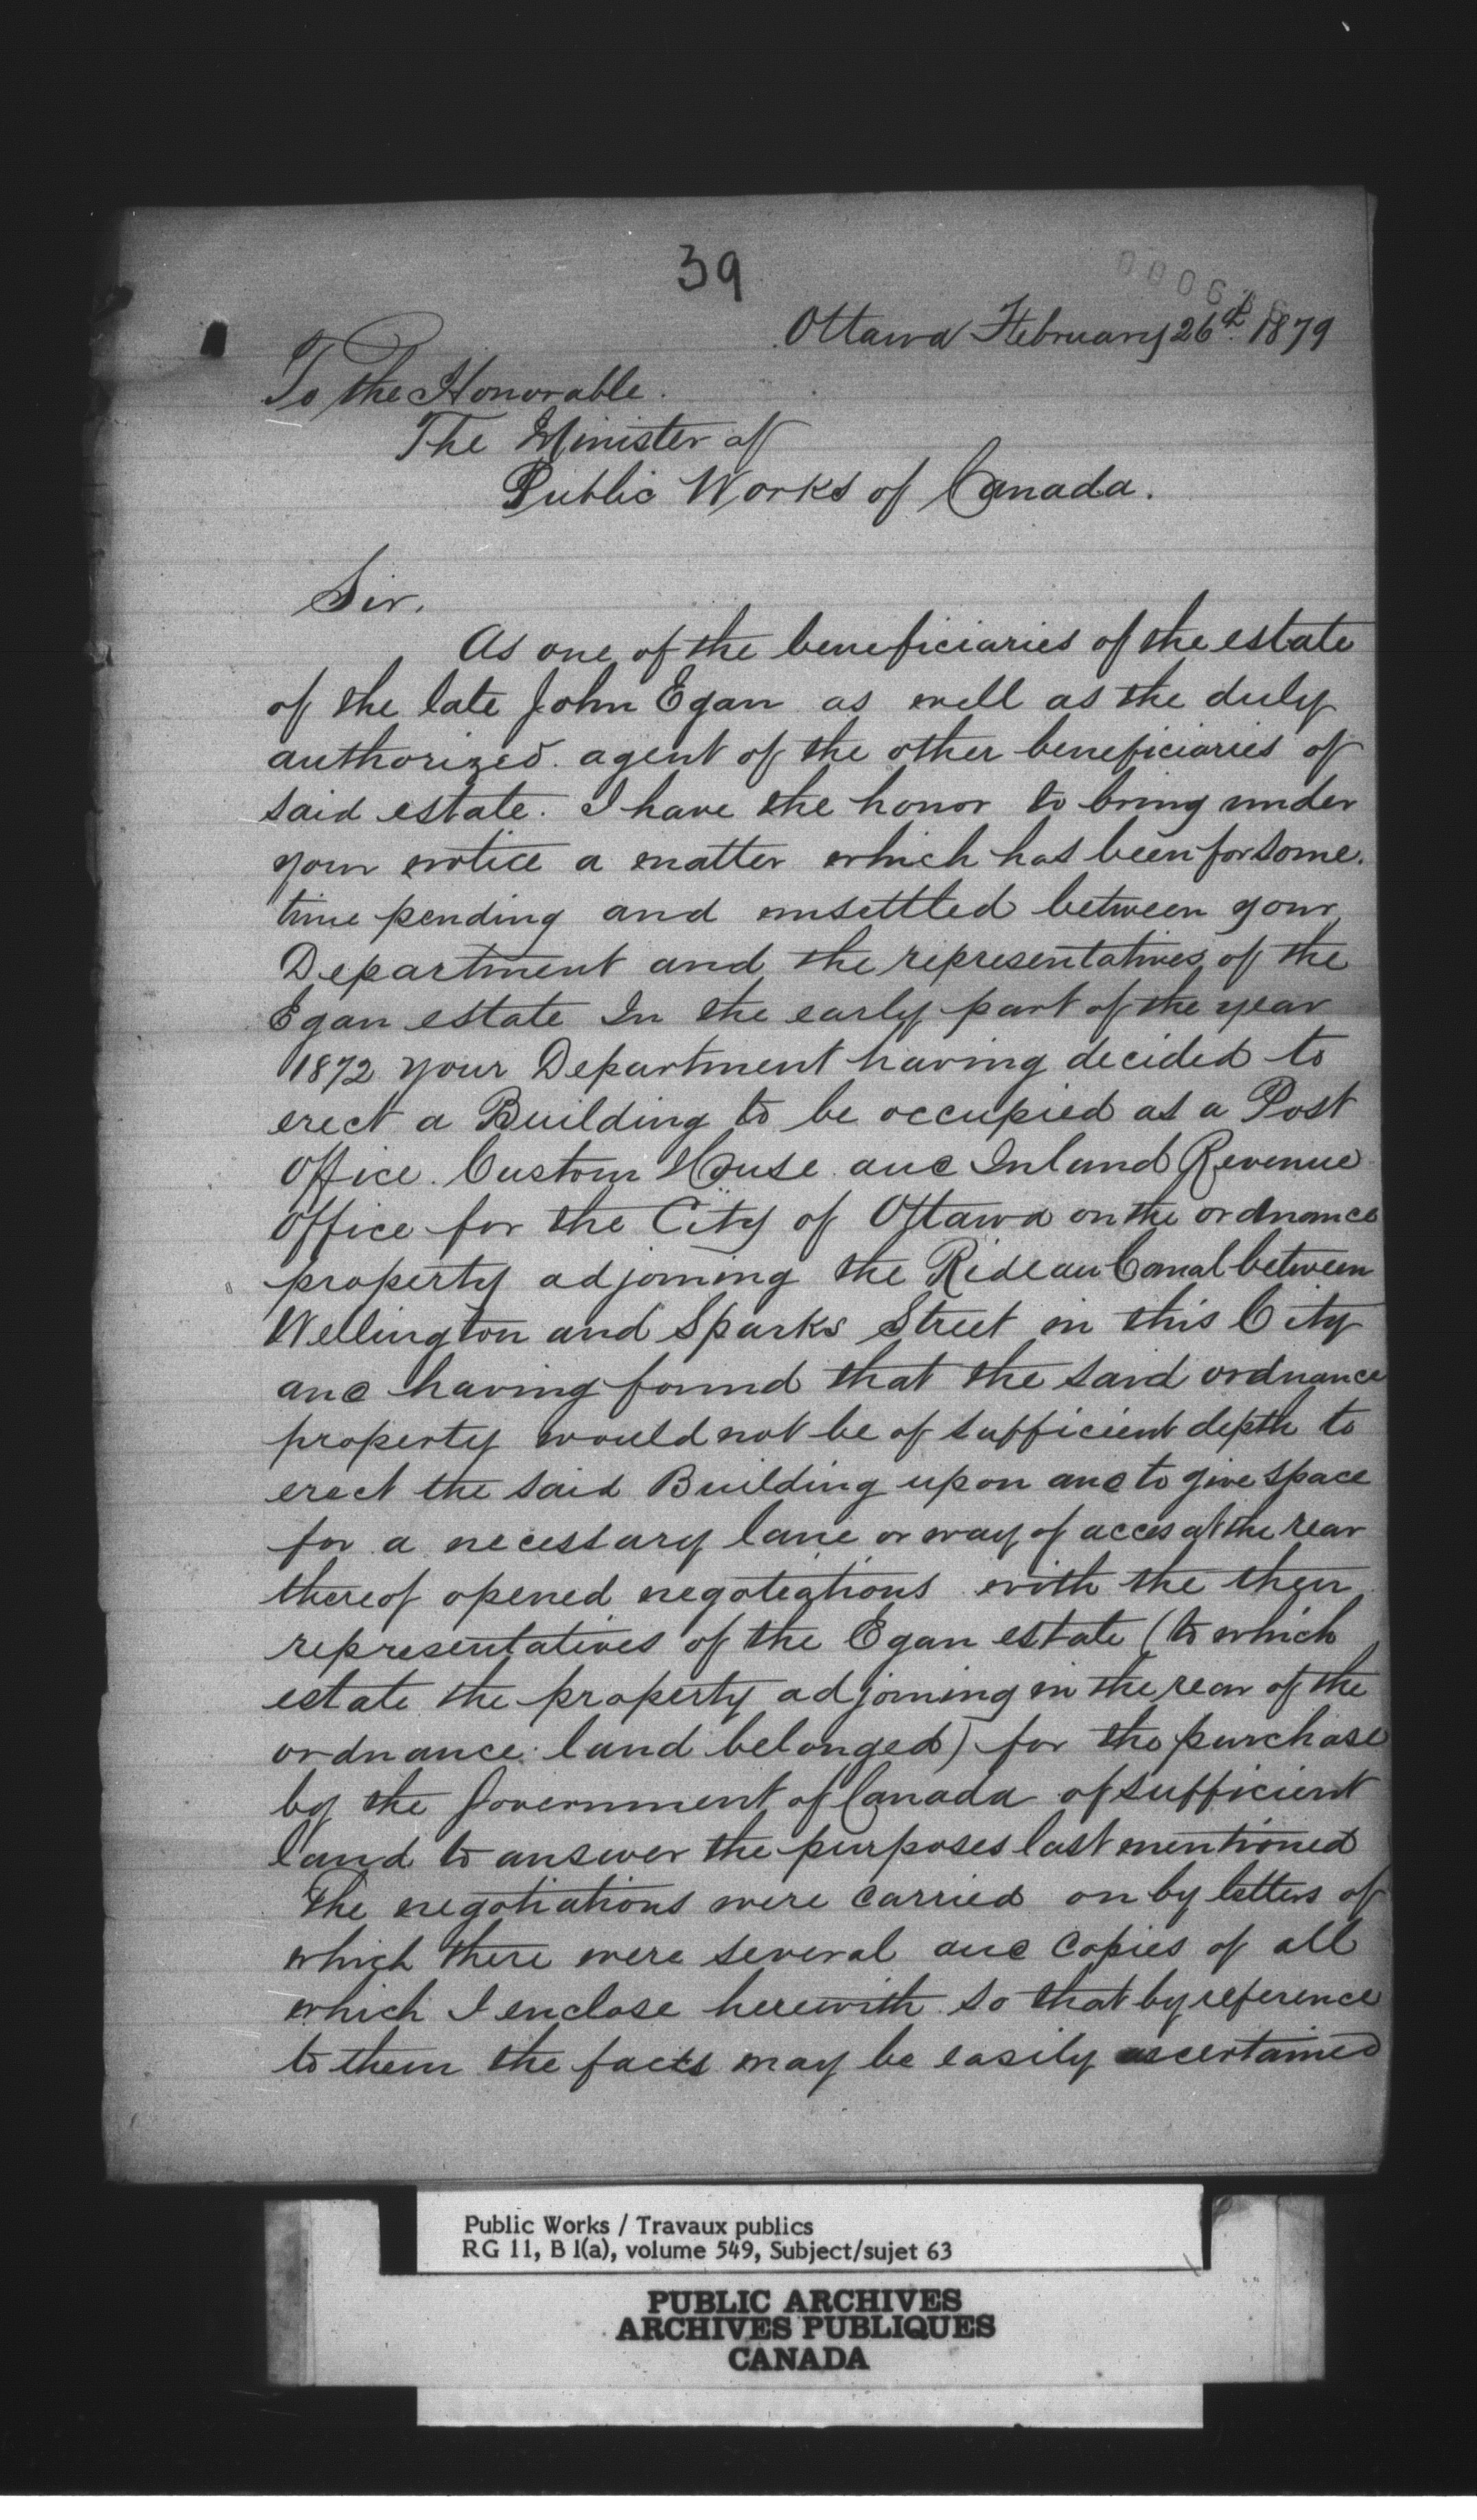 39
Ottawa February 26th 1879
To the Honorable.
The Minister of
Public Works of Canada.
Sir,
As one of the beneficiaries of the estate
of the late John Egan as well as the duly
authorized agent of the other beneficiaries of
said estate. I have the honor to bring under
your notice a matter which has been for some
time pending and unsettled between your
Department and the representatives of the
Egan estate In the early part of the year
1872 your Department having decided to
erect a Building to be occupied as a Post
Office. Custom House and Inland Revenue
Office for the City of Ottawa on the ordnance
property adjoining the Rideau Canal between
Wellington and Sparks Street in this City
and having found that the said ordnance
property would not be of sufficient depth to
erect the said Building upon and to give space
for a necessary lane or way of acces at the rear
thereof opened negotiations with the then
representatives of the Egan estate (to which
estate the property adjoining in the rear of the
ordnance land belonged) for the purchase
by the Government of Canada of sufficient
land to answer the purposes last mentioned
The negotiations were carried on by letters of
which there were several and copies of all
which I enclose herewith so that by reference
to them the facts may be easily ascertained
Public Works / Travaux publics
RG 11, B 1(a), volume 549, Subject/sujet 63
PUBLIC ARCHIVES
ARCHIVES PUBLIQUES
CANADA